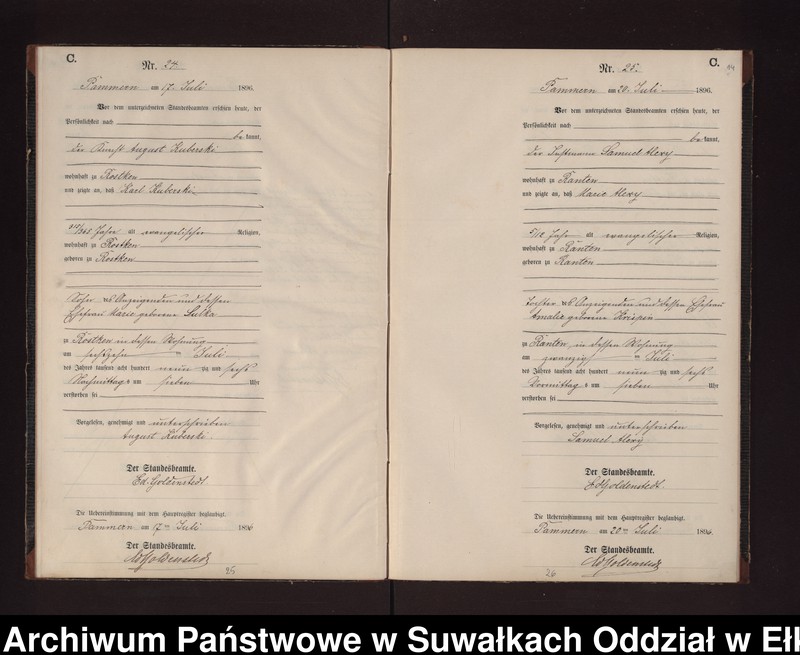 C.
Nr. 24.
Pammern am 17. Juli 1896.
Vor dem unterzeichneten Standesbeamten erschien heute, der
Persönlichkeit nach
be kannt,
der August Kuberski
wohnhaft zu Rostken
und zeigte an, daß Karl Kuberski
/365 Jahre alt evangelischer Religion,
wohnhaft zu Rostken
geboren zu Rostken
Sohn des Anzeigenden und dessen
Ehefrau Marie geborene Sulka
zu Rostken in dessen Wohnung
am sechzehn ten Juli
des Jahres tausend acht hundert neun zig und sechs
Nachmittags um sieben Uhr
verstorben sei
Vorgelesen, genehmigt und unterschrieben
August Kuberski.
Der Standesbeamte.
Ed. Goldenstedt.
Die Uebereinstimmung mit dem Hauptregister beglaubigt.
Pammern am 17ten Juli 1896
Der Standesbeamte.
Ed Goldenstedt
25
C.
Nr. 25.
Pammern am 20. Juli 1896.
Vor dem unterzeichneten Standesbeamten erschien heute, der
Persönlichkeit nach
be kannt,
der Losmann Samuel Alexy
wohnhaft zu Ranten
und zeigte an, daß Marie Alexy
/12 Jahr alt evangelischer Religion,
wohnhaft zu Ranten
geboren zu Ranten
Tochter des Anzeigenden und dessen Ehefrau
Amalie geborene Krispin
zu Ranten, in dessen Wohnung
am zwanzig ten Juli
des Jahres tausend acht hundert neun zig und sechs
Vormittags um sieben Uhr
verstorben sei
Vorgelesen, genehmigt und unterschrieben
Samuel Alexy
Der Standesbeamte.
Ed Goldenstedt.
Die Uebereinstimmung mit dem Hauptregister beglaubigt.
Pammern am 20ten Juli 1896.
Der Standesbeamte.
Ed Goldenstedt
26
Archiwum Państwowe w Suwałkach Oddział w Ełk